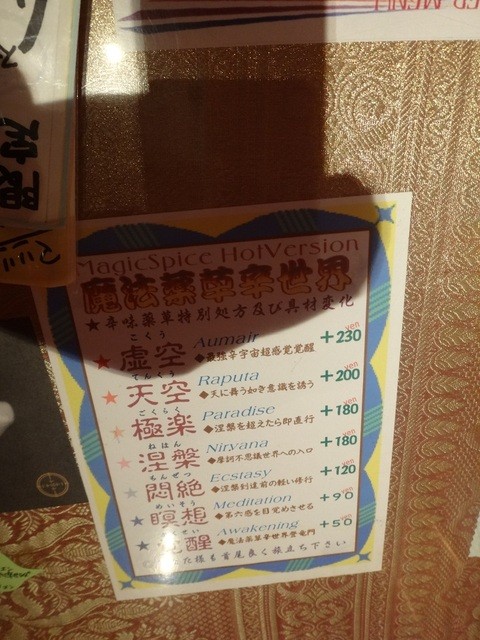 MagicSpice HotVersion
魔法薬草辛世界
★辛味薬草特別処方及び具材変化
こくう
★虚空 Aumair +230 yen
◆最強辛宇宙超感覚覚醒
てんくう
★天空 Raputa +200 yen
◆天に舞う如き意識を誘う
ごくらく
★極楽 Paradise +180 yen
◆涅槃を超えたら即直行
ねはん
★涅槃 Nirvana +180 yen
◆摩訶不思議世界への入口
もんぜつ
★悶絶 Ecstasy +120 yen
◆涅槃到達前の軽い修行
めいそう
★瞑想 Meditation +90 yen
◆第六感を目覚めさせる
★覚醒 Awakening +50 yen
◆魔法薬草辛世界登竜門
た様も首尾良く旅立ち下さい